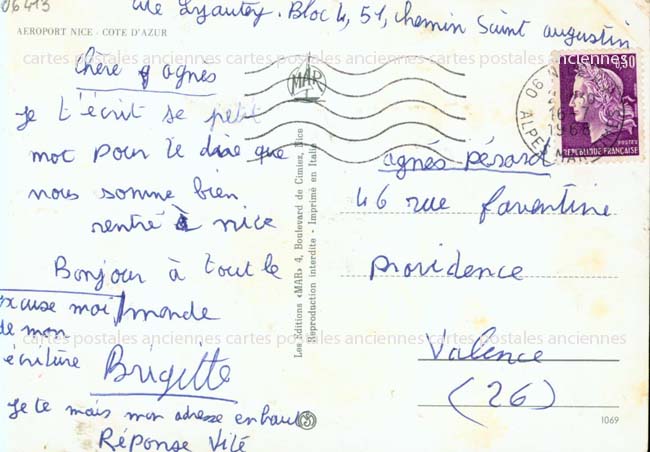 06413
Lyautey. Bloc 4, 51, chemin Saint augustin
AEROPORT NICE - COTE D'AZUR
cartes postales anciennes cartes postales anciennes cartes postales anciennes
chère agnès
Je t'écrit se petit
mot pour te dire que
nous somme bien
rentré à nice
Bonjour à tout le
monde
excuse moi
de mon
ecriture
Brigitte
Je te mais mon adresse en haut
Réponse Vité
Les Editions «MAR» 4, Boulevard de Cimiez, Nice
Reproduction interdite - Imprimé en Italie
MAR
06
16
1968
ALPES MAR
POSTES
REPUBLIQUE FRANÇAISE
agnés pérard
46 rue faventine
providence
cartes postales anciennes cartes postales anciennes cartes postales anciennes
Valence
(26)
1069